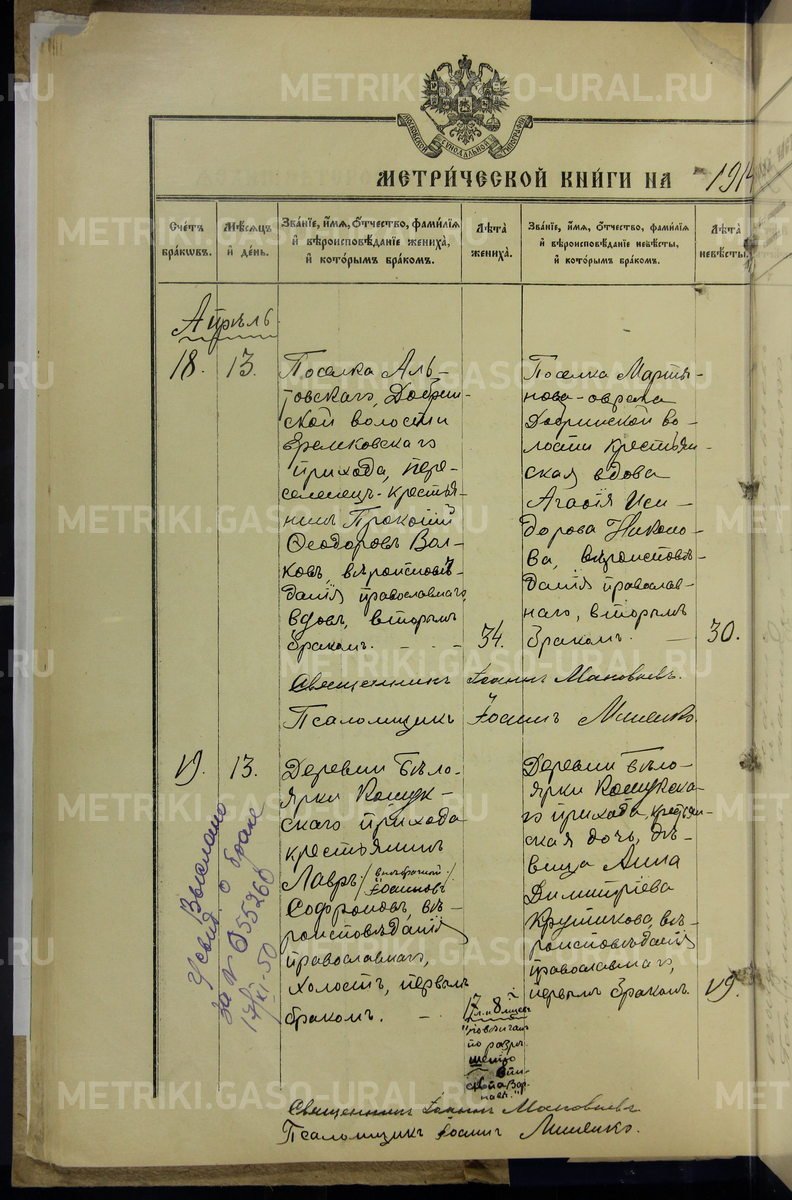 МОСКОВСКОЙ СѴНОДАЛЬНОЙ ТИПОГРАФІИ
МЕТРИ́ЧЕСКОЙ КНИ́ГИ НА 1914
Сче́тъ бра́кѡвъ.
Мѣ́сяцъ и҆ де́нь.
Зва́нїе, и҆́мѧ, ѻ҆́тчество, фами́лїѧ
и҆ вѣроисповѣ́данїе жениха̀,
и҆ кото́рымъ бра́комъ.
Лѣ́та жениха̀.
Зва́нїе, и҆́мѧ, ѻ҆́тчество, фами́лїѧ
и҆ вѣроисповѣ́данїе невѣ́сты,
и҆ кото́рымъ бра́комъ.
Лѣ́та невѣ́сты.
Апрѣль
18. 13.
Поселка Аль-
товскаго, Добрин-
ской волости
Еремковскаго
прихода, пере-
селенецъ-крестья-
нинъ Прокопій
Ѳеодоровъ Вол-
ковъ, вѣроисповѣ-
данія православнаго,
вдовъ, вторымъ
бракомъ. 34.
Поселка Мартья-
нова-оврага
Добринской во-
лости крестьян-
ская вдова
Агаѳія Иси-
дорова Николо-
ва, вѣроисповѣ-
данія православ-
наго, вторымъ
бракомъ. 30.
Священникъ Іоаннъ
Псаломщикъ Іоаннъ Лишенко
19. 13.
Деревни Бѣло-
ярки Кошук-
скаго прихода
крестьянинъ
Лавръ /внѣбрачный/ Іоанновъ
Софроновъ, вѣ-
роисповѣданія
православнаго,
холостъ, первымъ
бракомъ.
17 л. и 8 мѣсяц.
"повѣнчанъ
по разрѣ-
шенію
Деревни Бѣло-
ярки Кошукска-
го прихода, крестьян-
ская дочь, дѣ-
вица Анна
Димитріева
Крутикова, вѣ-
роисповѣданія
православнаго,
первымъ бракомъ. 19.
Выслано
свид. о браке
за № 055260
17/XI-50
Священникъ Іоаннъ
Псаломщикъ Іоаннъ Лишенко.
METRIKI.GASO-URAL.RU